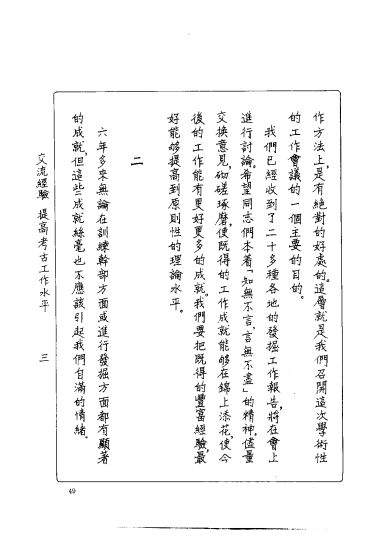 作方法上，是有絕對的好處的。這層就是我們召開這次學術性
的工作會議的一個主要的目的。
我們已經收到了二十多種各地的發掘工作報告，將在會上
進行討論。希望同志們本着「知無不言，言無不盡」的精神，儘量
交換意見，砌磋琢磨，使既得的工作成就能够在錦上添花，使今
後的工作能有更好更多的成就。我們要把既得的豐富經驗，最
好能够提高到原則性的理論水平。
二
六年多來，無論在訓練幹部方面或進行發掘方面都有顯著
的成就，但這些成就絲毫也不應該引起我們自滿的情緒。
交流經驗 提高考古工作水平 三
49